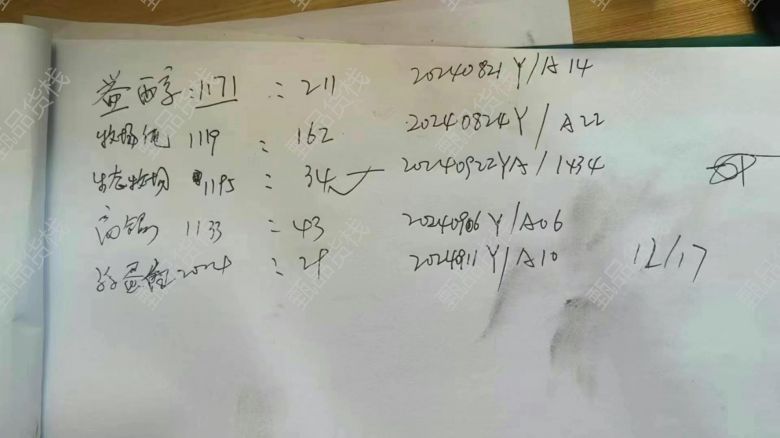 益西亨:1171 : 211 20240821Y/A14
牧场纯 1119 : 162 20240824Y/A22
生态牧场 1195 : 34 ✓ 20240922YA/1434
高钙 1133 : 43 20240906Y/A06
2024 : 29 2024911Y/A10 12/17
甄品货栈